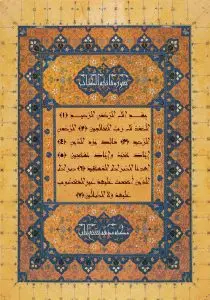 سورة فاتحة الكتاب
بسم الله الرحمن الرحيم (1)
الحمد لله رب العالمين (2) الرحمن
الرحيم (3) مالك يوم الدين (4)
إياك نعبد وإياك نستعين (5)
اهدنا الصراط المستقيم (6) صراط
الذين أنعمت عليهم غير المغضوب
عليهم ولا الضالين (7)